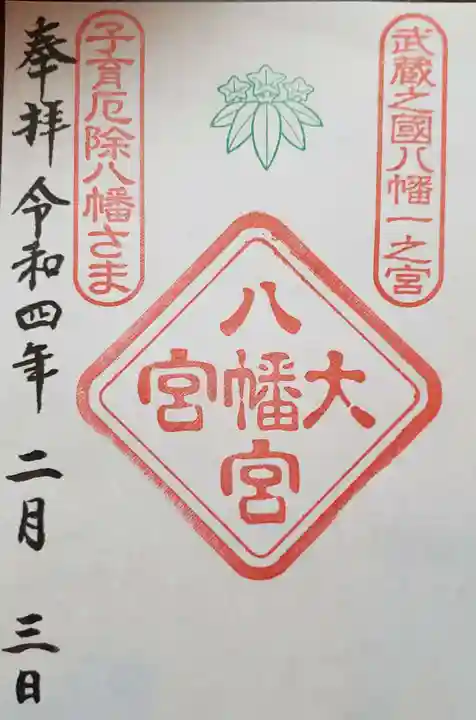 武蔵之國八幡一之宮
大
八幡宮
宮
子育厄除八幡さま
奉拝 令和四年 二月 三日